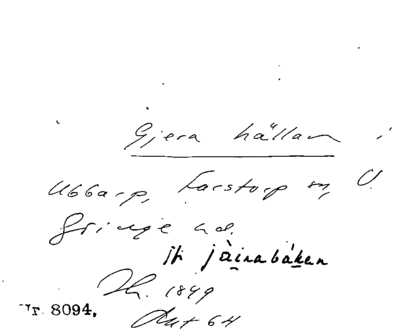 Gjera hällan i
Ubbarp, Farstorp sn, V.
Göinge hd.
jk jài̲nabáḵen
Dh. 1849
Aut 64
Nr. 8094.